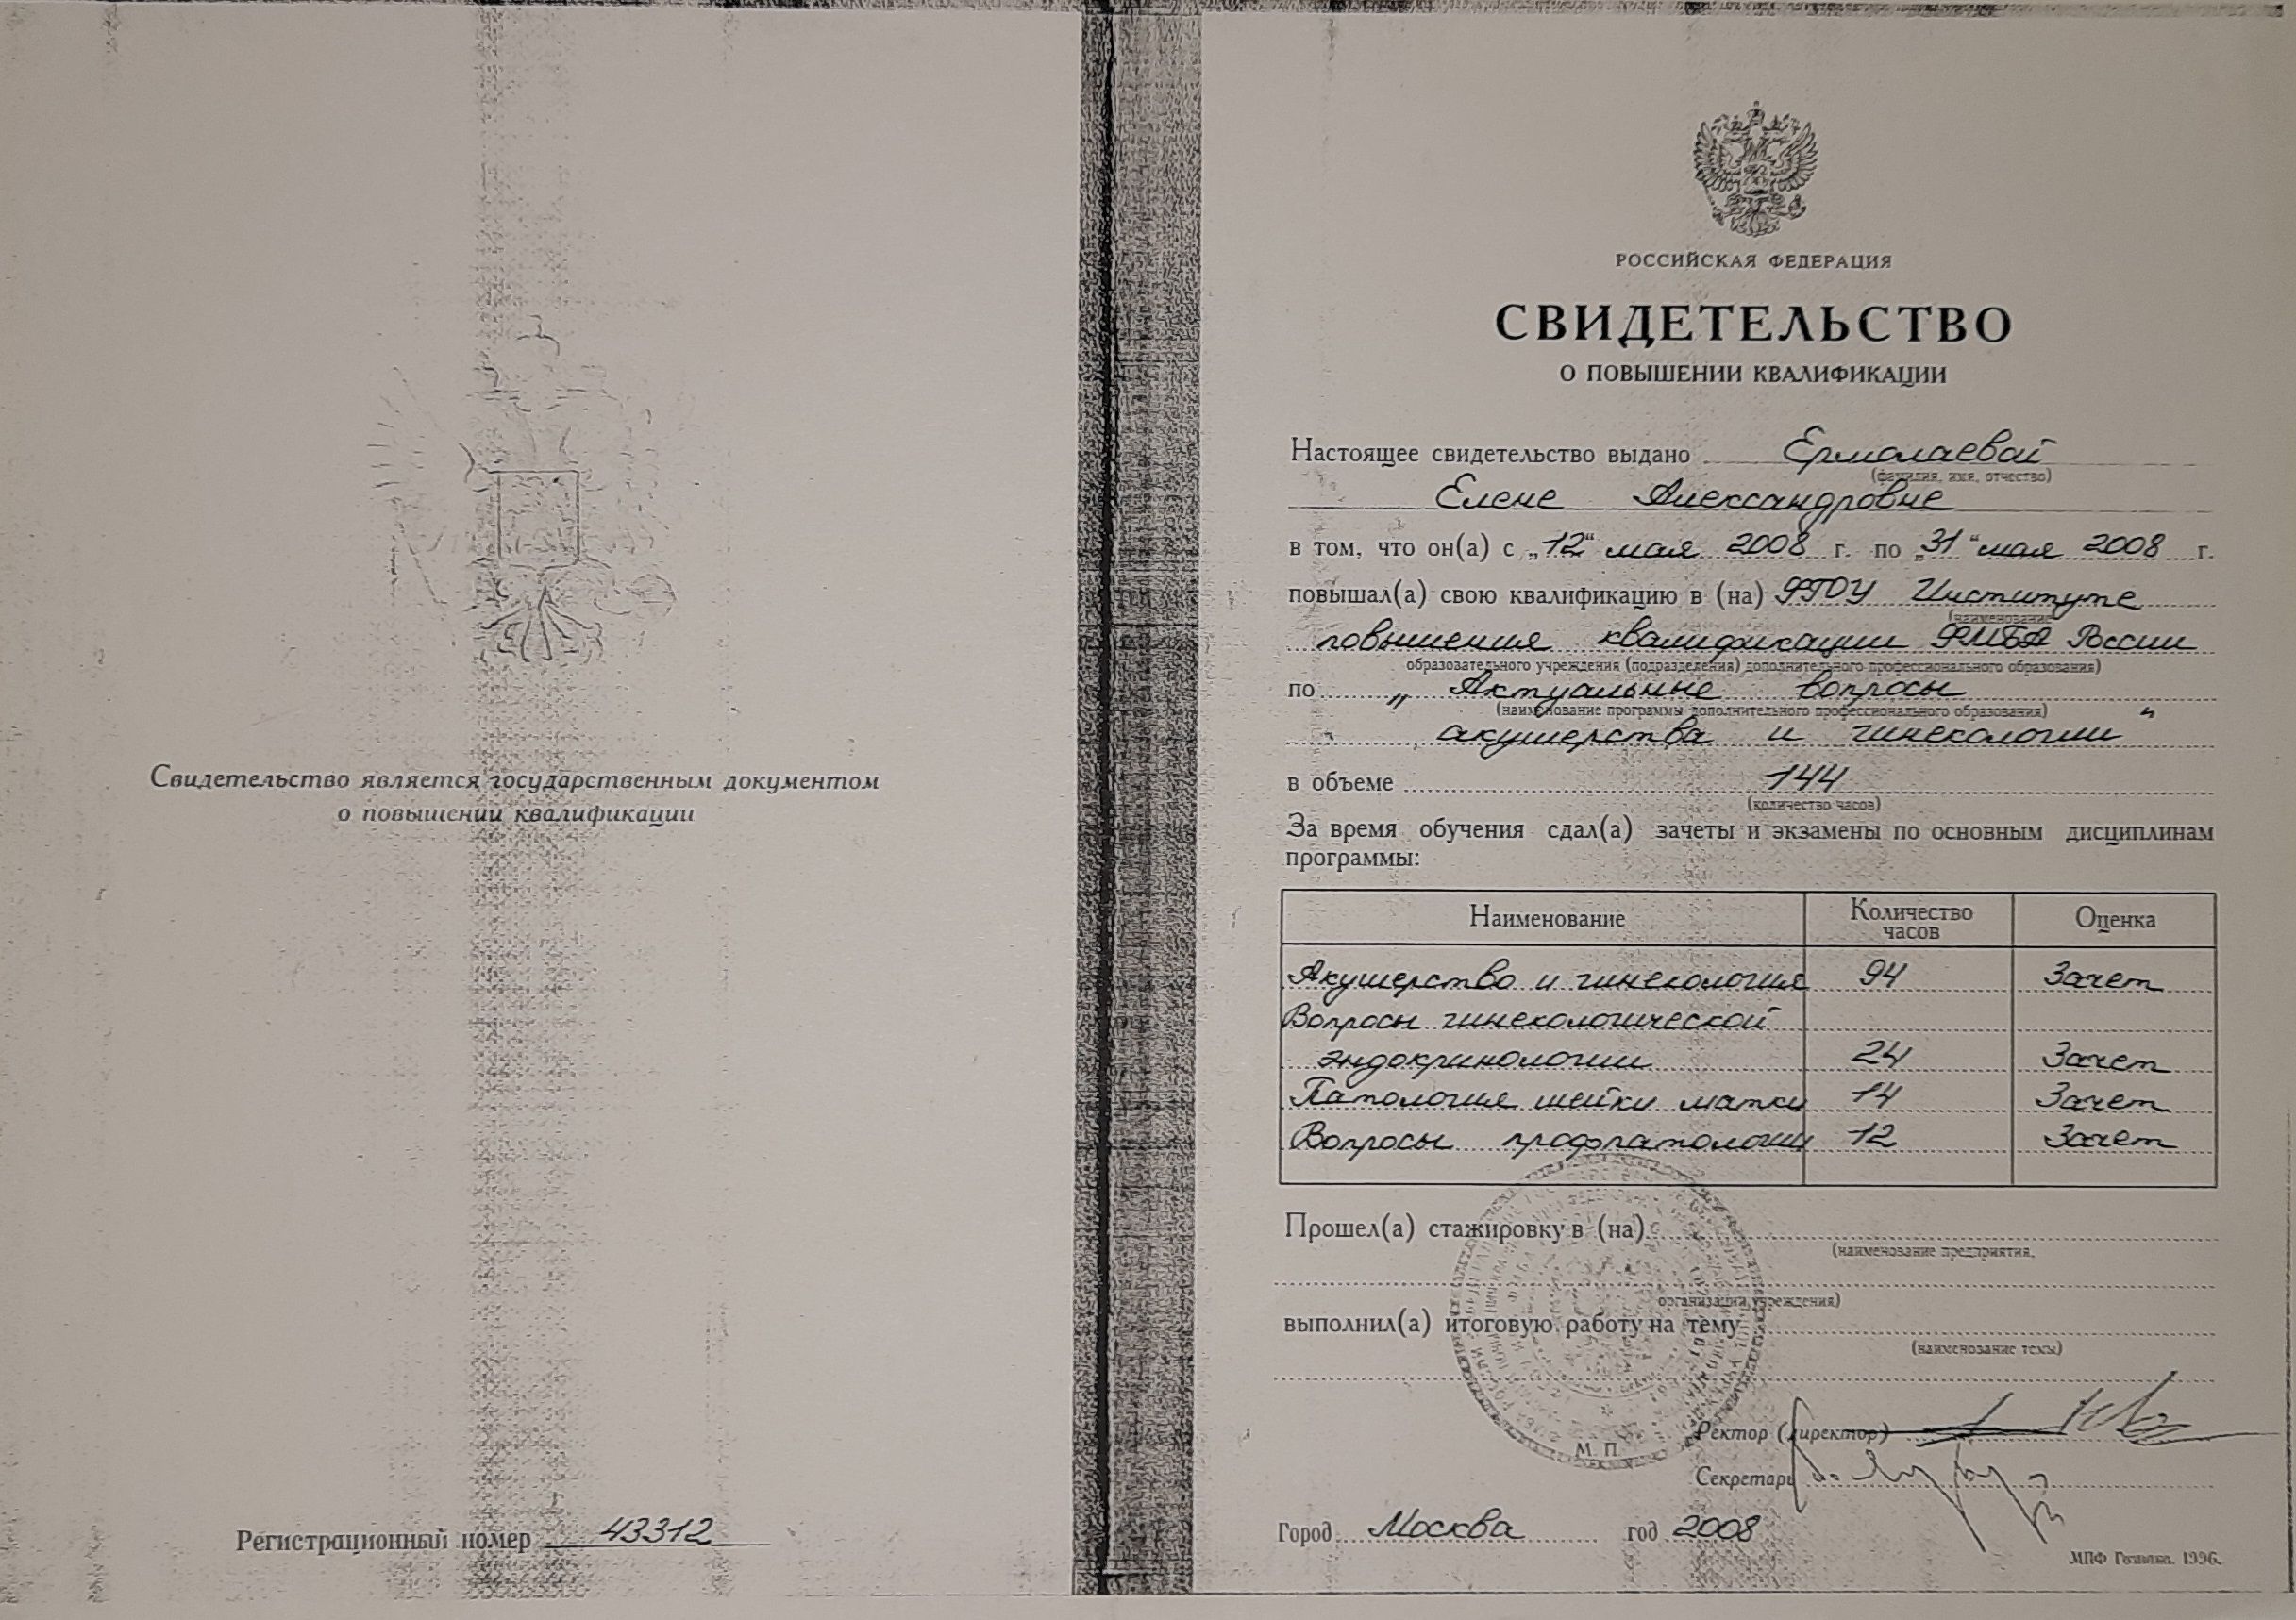 Свидетельство является государственным документом
о повышении квалификации
Регистрационный номер 43312
РОССИЙСКАЯ ФЕДЕРАЦИЯ
СВИДЕТЕЛЬСТВО
О ПОВЫШЕНИИ КВАЛИФИКАЦИИ
Настоящее свидетельство выдано Ермолаевой
(фамилия, имя, отчество)
Елене Александровне
в том, что он(а) с „12“ мая 2008 г. по „31“ мая 2008 г.
повышал(а) свою квалификацию в (на) ФГОУ Институте
(наименование
повышения квалификации ФМБА России
образовательного учреждения (подразделения) дополнительного профессионального образования)
по „Актуальные вопросы
(наименование программы дополнительного профессионального образования)
акушерства и гинекологии“
в объеме 144
(количество часов)
За время обучения сдал(а) зачеты и экзамены по основным дисциплинам
программы:
Наименование Количество часов Оценка
Акушерство и гинекология 94 Зачет
Вопросы гинекологической
эндокринологии 24 Зачет
Патология шейки матки 14 Зачет
Вопросы профпатологии 12 Зачет
Прошел(а) стажировку в (на)
(наименование предприятия,
организации, учреждения)
выполнил(а) итоговую работу на тему
(наименование темы)
М. П.
Ректор (директор)
Секретарь
Город Москва год 2008
МПФ Гознака. 1996.